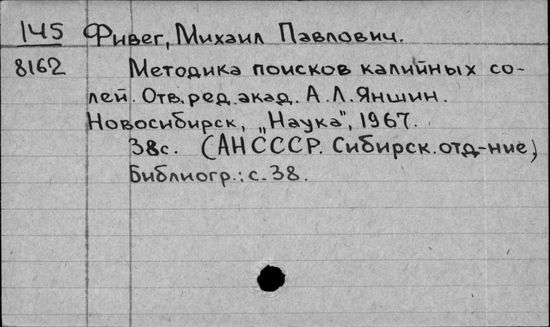 145 Фивег, Михаил Павлович.
8162 Методика поисков калийных со-
лей. Отв. ред. акад. А.Л. Яншин.
Новосибирск, „Наука", 1967.
38с. (АН СССР. Сибирск. отд-ние)
Библиогр.: с. 38.